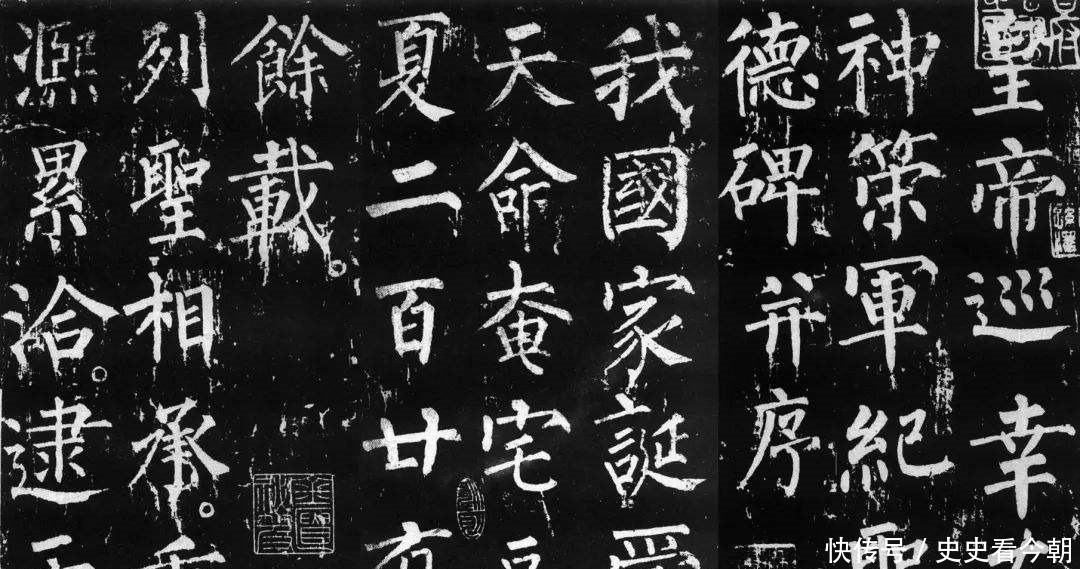 皇帝巡幸
神策軍紀
德碑并序
我國家誕
天命奄宅
夏二百廿
餘載。
列聖相承。
熙累洽。逮
快传号 / 史史看今朝